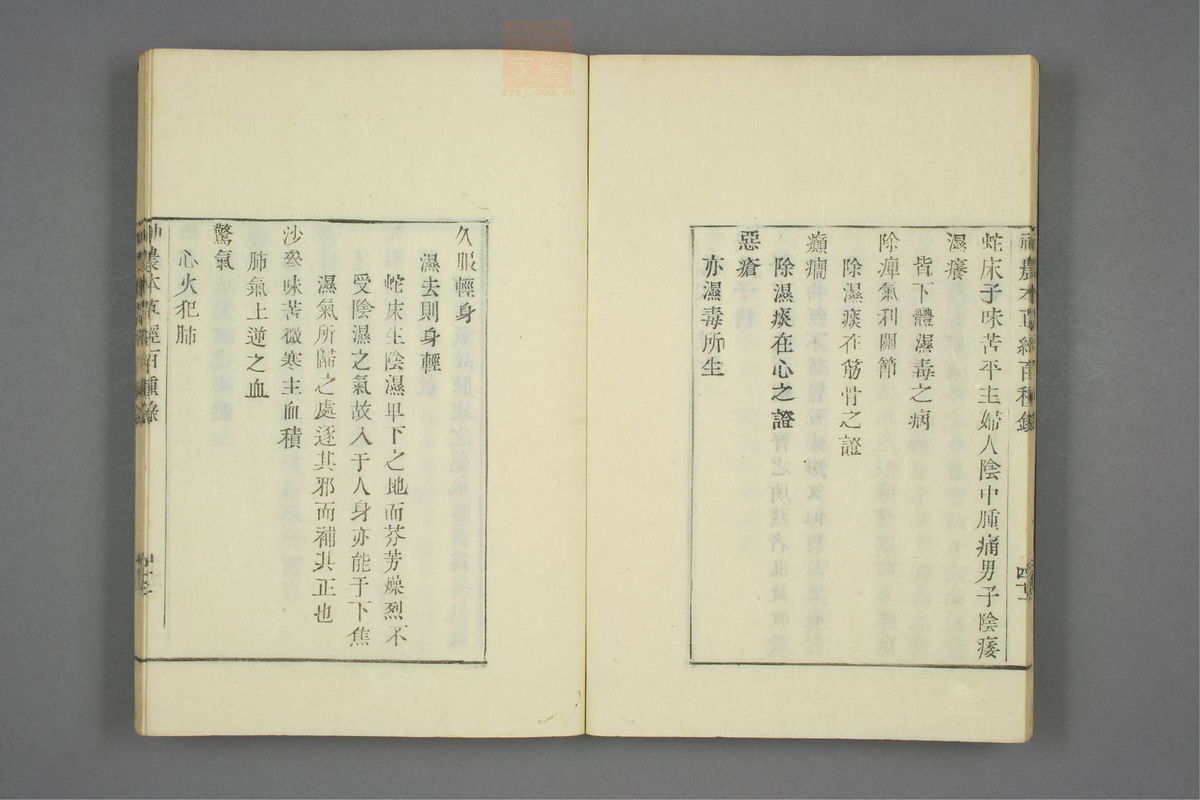 神農本草經百種錄
蛇床子味苦平主婦人陰中腫痛男子陰痿
濕癢
皆下體濕毒之病
除痺氣利關節
除濕痰在筋骨之證
癲癇
除濕痰在心之證
惡瘡
亦濕毒所生
四十二
久服輕身
濕去則身輕
蛇床生陰濕卑下之地而芬芳燥烈不
受陰濕之氣故入于人身亦能于下焦
濕氣所歸之處逐其邪而補其正也
沙參味苦微寒主血積
肺氣上逆之血
驚氣
心火犯肺
神農本草經百種錄
zysj.com.cn